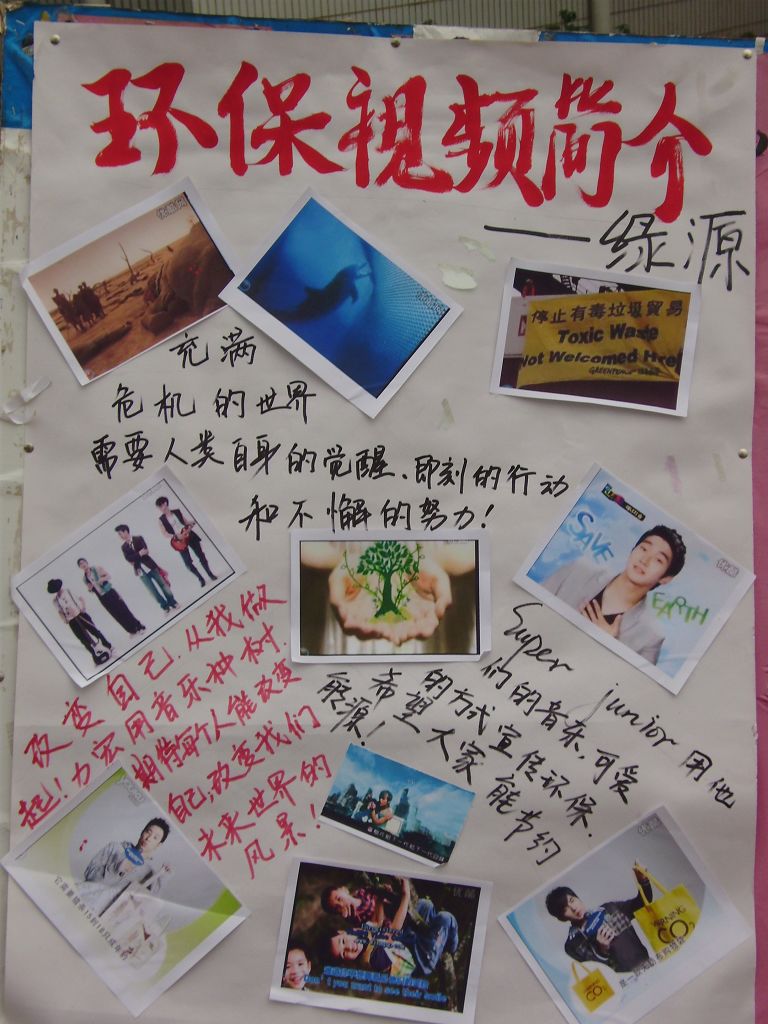 环保视频简介
——绿源
停止有毒垃圾貿易
Toxic Waste
Not Welcomed Here
GREENPEACE
充满
危机的世界
需要人类自身的觉醒、即刻的行动
和不懈的努力!
SAVE
EARTH
改变自己.从我做
起!力宏用音乐种树
期待每个人能改变
自己,改变我们
未来世界的
风景!
Super junior 用他
们的音乐,可爱
的方式宣传环保.
希望大家能节约
能源!
优酷
Don't you want to see their smile
WARNING
CO2
CO2